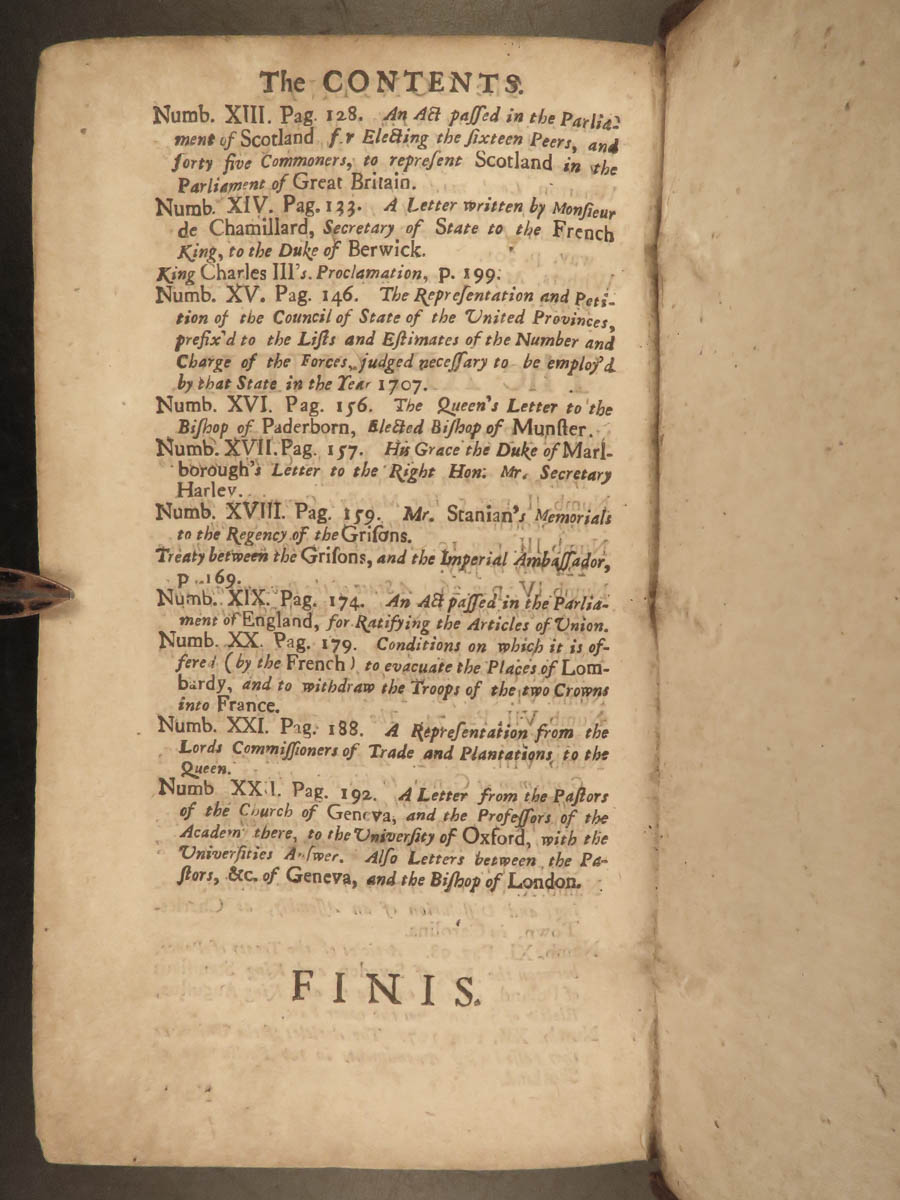 The CONTENTS.
Numb. XIII. Pag. 128. An Act paſſed in the Parlia-
ment of Scotland f.r Electing the ſixteen Peers, and
forty five Commoners, to repreſent Scotland in the
Parliament of Great Britain.
Numb. XIV. Pag. 133. A Letter written by Monſieur
de Chamillard, Secretary of State to the French
King, to the Duke of Berwick.
King Charles III's. Proclamation, p. 199.
Numb. XV. Pag. 146. The Repreſentation and Peti-
tion of the Council of State of the United Provinces,
prefix'd to the Liſts and Eſtimates of the Number and
Charge of the Forces, judged neceſſary to be employ'd
by that State in the Year 1707.
Numb. XVI. Pag. 156. The Queen's Letter to the
Biſhop of Paderborn, Elected Biſhop of Munſter.
Numb. XVII. Pag. 157. His Grace the Duke of Marl-
borough's Letter to the Right Hon. Mr. Secretary
Harley.
Numb. XVIII. Pag. 159. Mr. Stanian's Memorials
to the Regency of the Griſons.
Treaty between the Griſons, and the Imperial Ambaſſador,
p. 169.
Numb. XIX. Pag. 174. An Act paſſed in the Parlia-
ment of England, for Ratifying the Articles of Union.
Numb. XX. Pag. 179. Conditions on which it is of-
fered (by the French) to evacuate the Places of Lom-
bardy, and to withdraw the Troops of the two Crowns
into France.
Numb. XXI. Pag. 188. A Repreſentation from the
Lords Commiſſioners of Trade and Plantations to the
Queen.
Numb XXII. Pag. 192. A Letter from the Paſtors
of the Church of Geneva, and the Profeſſors of the
Academ there, to the Univerſity of Oxford, with the
Univerſities Anſwer. Alſo Letters between the Pa-
ſtors, &c. of Geneva, and the Biſhop of London.
FINIS.